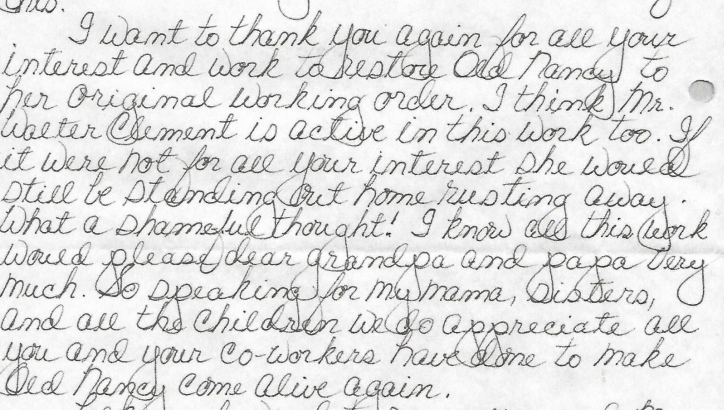 this.
I want to thank you again for all your
interest and work to restore Old Nancy to
her original working order. I think Mr.
Walter Clement is active in this work too. If
it were not for all your interest she would
still be standing out home rusting away.
What a shameful thought! I know all this work
would please dear grandpa and papa very
much. So speaking for my mama, sisters,
and all the children we do appreciate all
you and your co-workers have done to make
Old Nancy come alive again.